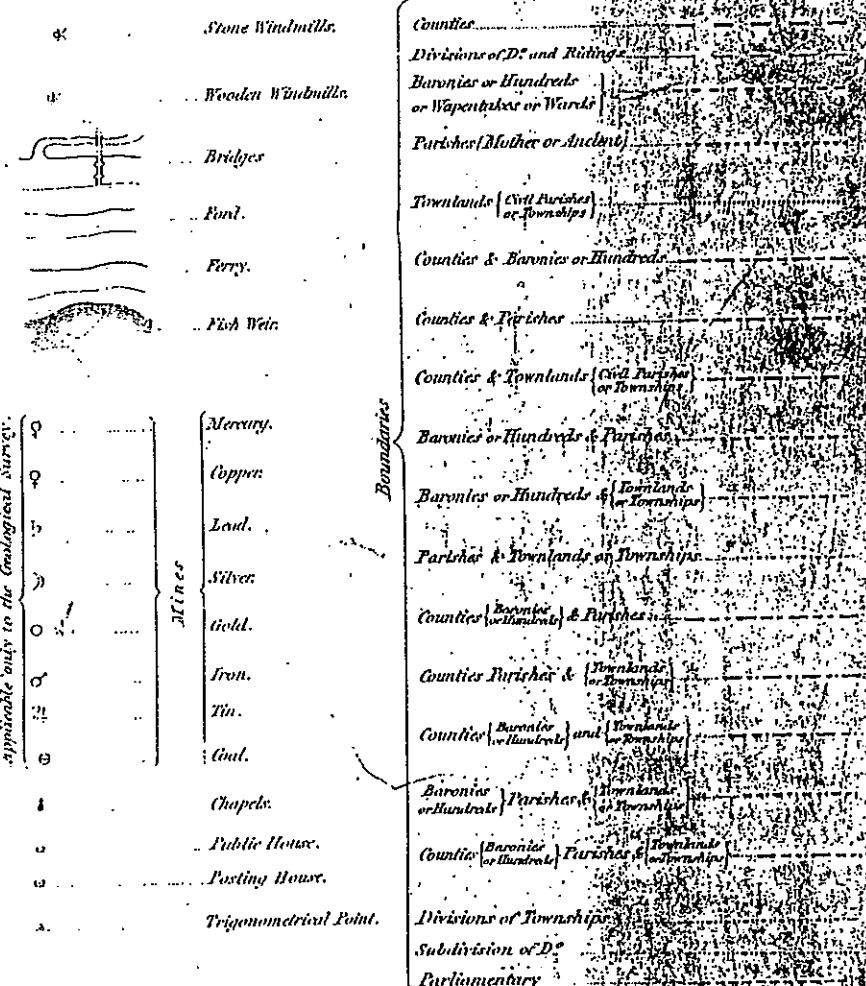 Stone Windmills.
Wooden Windmills.
Bridges
Ford.
Ferry.
Fish Weir.
applicable only to the Geological Survey.
Mines
Mercury.
Copper.
Lead.
Silver.
Gold.
Iron.
Tin.
Coal.
Chapels.
Public House.
Posting House.
Trigonometrical Point.
Boundaries
Counties
Divisions of Dº and Ridings
Baronies or Hundreds
or Wapentakes or Wards
Parishes (Mother or Ancient)
Townlands { Civil Parishes
or Townships
Counties & Baronies or Hundreds
Counties & Parishes
Counties & Townlands { Civil Parishes
or Townships
Baronies or Hundreds & Parishes
Baronies or Hundreds & { Townlands
or Townships }
Parishes & Townlands or Townships
Counties { Baronies
or Hundreds } & Parishes
Counties Parishes & { Townlands
or Townships }
Counties { Baronies
or Hundreds } and { Townlands
or Townships }
Baronies
or Hundreds } Parishes & { Townlands
or Townships }
Counties { Baronies
or Hundreds } Parishes & { Townlands
or Townships }
Divisions of Townships
Subdivision of Dº
Parliamentary